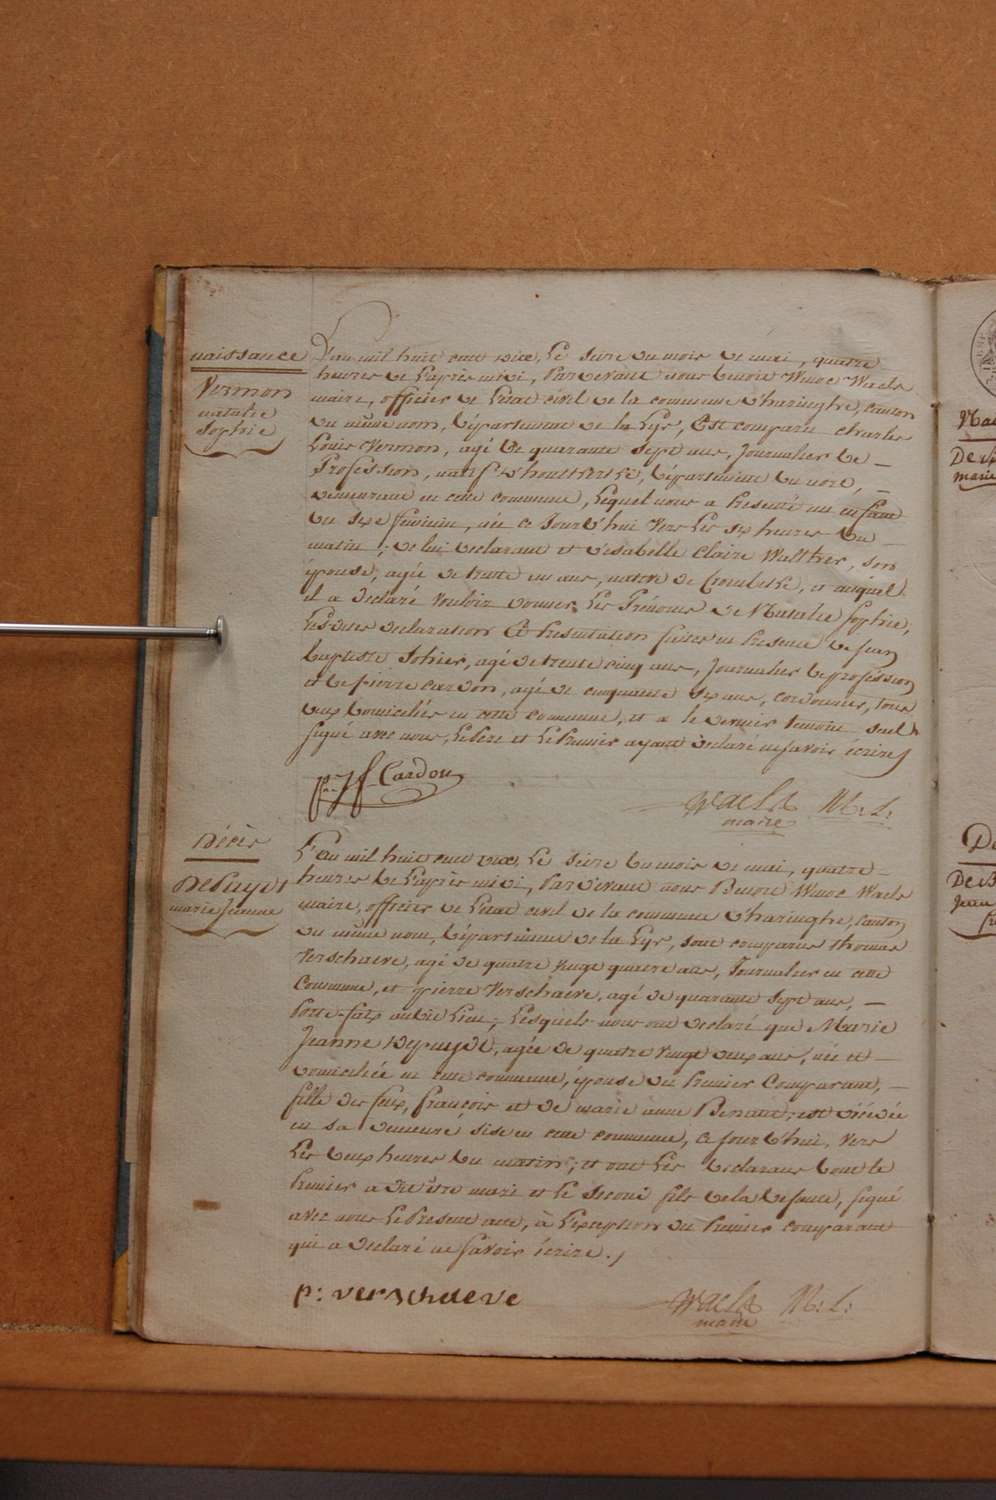 naissance
Vermon
natalie
Sophie
L'an mil huit cent dix, le seize du mois de mai, quatre
heures de l'après midi, Pardevant nous Benoit Winoc Waels
maire, officier de l'état civil de la commune d'haringhe, canton
du même nom, département de la Lys, Est comparu charles
Louis Vermon, agé de quarante sept ans, Journalier de
Profession, natif d'houtkerke, département du nord,
demeurant en cette commune, Lequel nous a Presenté un enfant
du sexe feminin, née ce Jourd'hui vers les six heures du
matin, de lui declarant et d'isabelle Claire Walther, son
épouse, agée de trente un ans, native de Crombeke, et auquel
il a declaré vouloir donner les Prénoms de Natalie sophie,
Lesdites declaration et Presentation faites en Presence de jean
baptiste Sohier, agé de trente cinq ans, Journalier de profession
et de pierre cardon, agé de cinquante six ans, cordonnier, tous
deux domiciliés en cette commune, et a le dernier temoin seul
signé avec nous, Le Pere et le Premier ayant declaré ne savoir écrire
p: J f Cardou
Waels M. L:
maire
Décès
DePuydt
marie Jeanne
L'an mil huit cent dix, Le seize du mois de mai, quatre
heures de l'après midi, Pardevant nous Benoit Winoc Waels
maire, officier de l'état civil de la commune d'haringhe, canton
du même nom, département de la Lys, sont comparus thomas
Verschaeve, agé de quatre vingt quatre ans, Journalier en cette
Commune, et pierre Verschaeve, agé de quarante sept ans,
Porte-faix audit Lieu; Lesquels nous ont declaré que Marie
Jeanne Depuydt, agée de quatre vingt deux ans, née et
domiciliée en cette commune, épouse du Premier Comparant,
fille des feux, françois et de marie anne Benaut, est décédée
en sa demeure sise en cette commune, ce jourd'hui, vers
les deux heures du matin; et ont les declarans dont le
Premier a dit être mari et le Second fils de la defunte, signé
avec nous le Present acte, à l'exception du Premier comparant
qui a declaré ne savoir écrire.
p: verschaeve
Waels M: L:
maire
De
marie
De
Jean